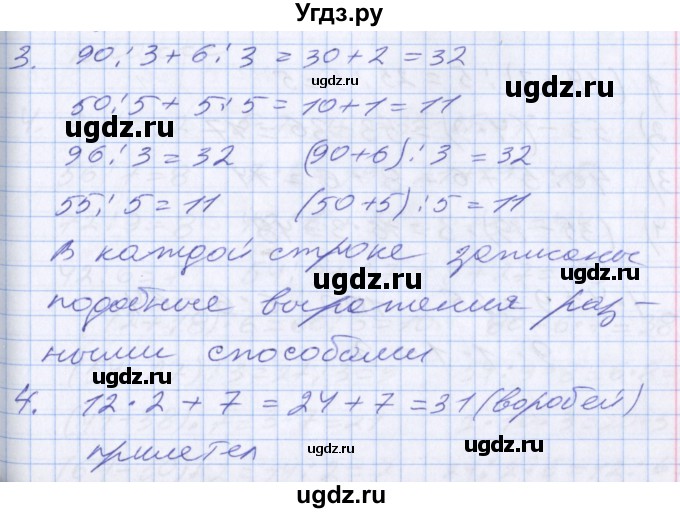 Угдз.ру
3. 90 : 3 + 6 : 3 = 30 + 2 = 32
ugdz.ru
50 : 5 + 5 : 5 = 10 + 1 = 11
ugdz.ru ugdz.ru
96 : 3 = 32 (90+6) : 3 = 32
ugdz.ru
55 : 5 = 11 (50+5) : 5 = 11
В каждой строке записаны
ugdz.ru ugdz.ru
подобные выражения раз-
ными способами
ugdz.ru ugdz.ru
4. 12 · 2 + 7 = 24 + 7 = 31 (воробей)
прилетел
ugdz.ru ugdz.ru
ugdz.ru